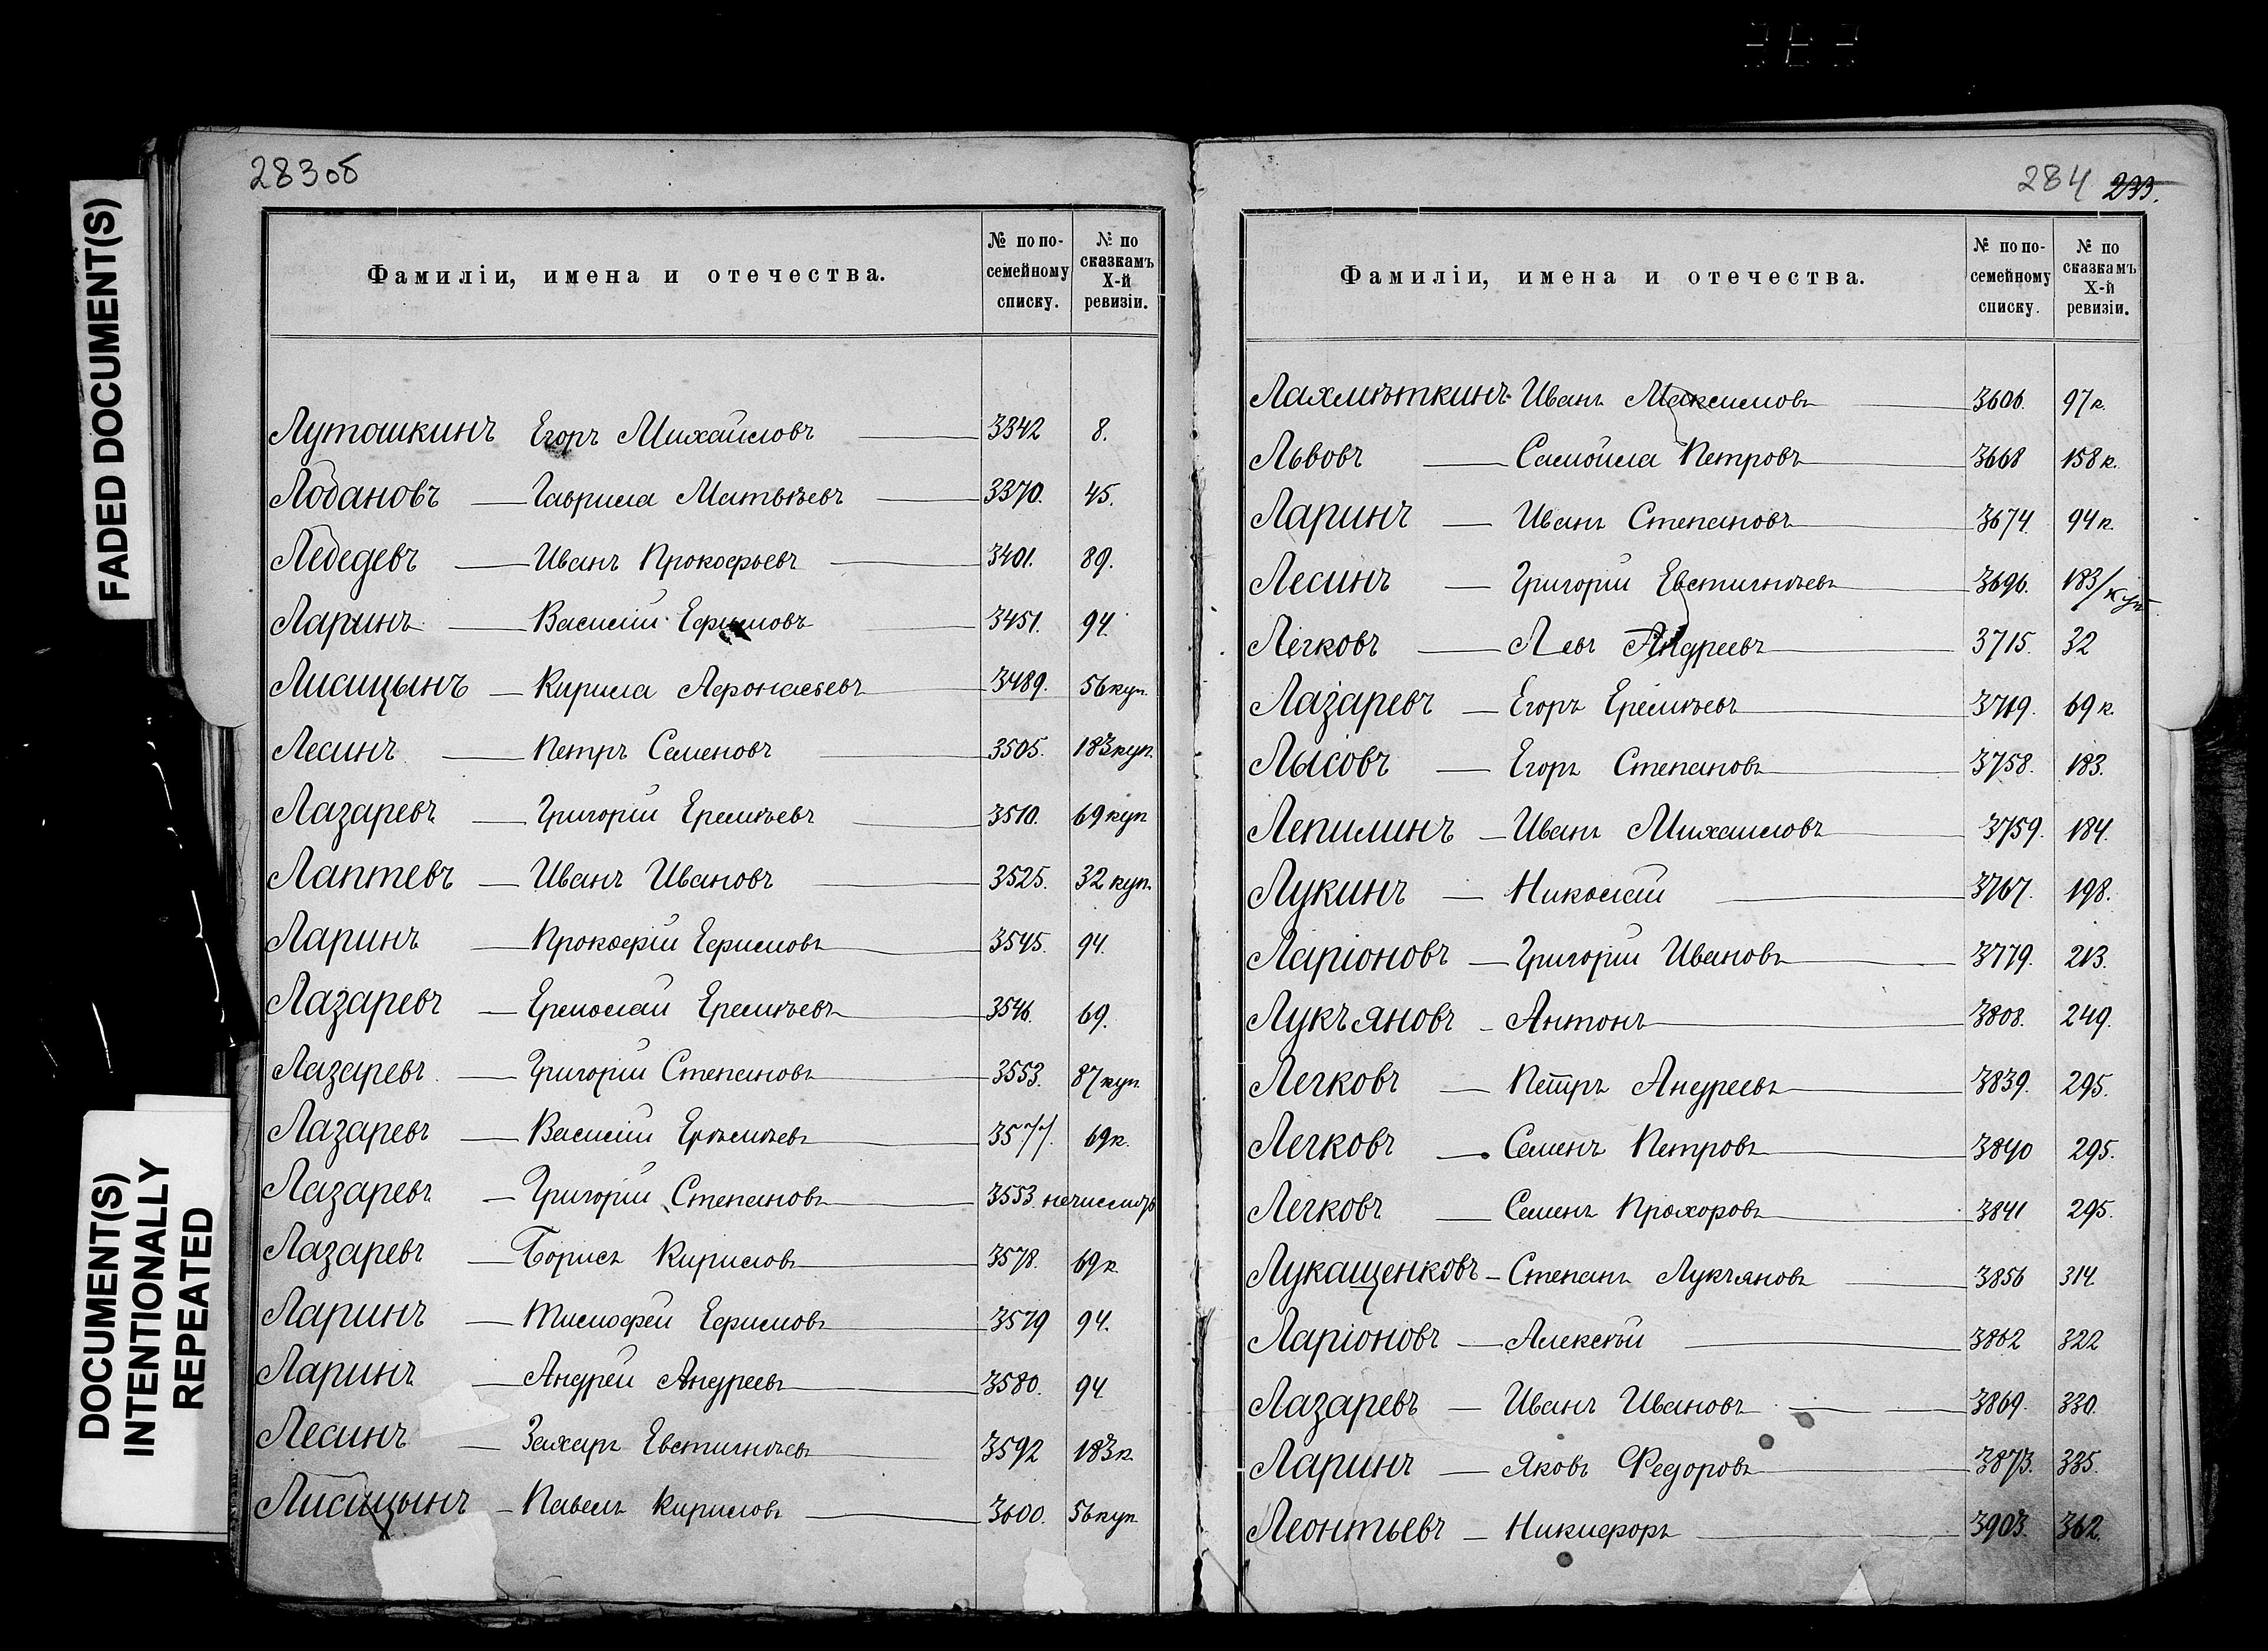 283об
Фамиліи, имена и отечества.
№ по по-
семейному
списку.
№ по
сказкамъ
X-й
ревизіи.
Лутошкинъ Егоръ Михайловъ 3342 8.
Лобановъ — Гаврила Матвѣевъ 3370. 45.
Лебедевъ — Иванъ Прокофьевъ 3401. 89.
Ларинъ — Василій Ефимовъ 3451. 94.
Лисицынъ — Кирила Афонасьевъ 3489. 56 куп.
Лесинъ — Петръ Семеновъ 3505. 183 куп.
Лазаревъ — Григорій Еремѣевъ 3510. 69 куп
Лаптевъ — Иванъ Ивановъ 3525. 32 куп.
Ларинъ — Прокофій Ефимовъ 3545. 94.
Лазаревъ — Ермолай Еремѣевъ 3546. 69.
Лазаревъ — Григорій Степановъ 3553. 87 куп.
Лазаревъ — Василій Ерѣмѣевъ 3577. 69 к.
Лазаревъ — Григорій Степановъ 3553.
Лазаревъ — Борисъ Кириловъ 3578. 69 к.
Ларинъ — Тимофей Ефимовъ 3579 94.
Ларинъ — Андрей Андреевъ 3580. 94
Лесинъ — Захаръ Евстигнѣевъ 3592 183 к.
Лисицынъ — Павелъ Кириловъ 3600. 56 куп
284 233.
Фамиліи, имена и отечества.
№ по по-
семейному
списку.
№ по
сказкамъ
X-й
ревизіи.
Лахмѣткинъ Иванъ Максимовъ 3606. 97 к.
Львовъ — Самойла Петровъ 3668 158 к.
Ларинъ — Иванъ Степановъ 3674. 94 к.
Лесинъ — Григорій Евстигнѣевъ 3696. 183/куп
Легковъ — Левъ Андреевъ 3715. 32
Лазаревъ — Егоръ Еремѣевъ 3719. 69 к.
Лысовъ — Егоръ Степановъ 3758. 183.
Лепилинъ — Иванъ Михаиловъ 3759. 184.
Лукинъ — Николай 3767. 198.
Ларіоновъ — Григорій Ивановъ 3779. 213.
Лукъяновъ — Антонъ 3808. 249.
Легковъ — Петръ Андреевъ 3839. 295.
Легковъ — Семенъ Петровъ 3840 295.
Легковъ — Семенъ Прохоровъ 3841 295.
Лукащенковъ — Степанъ Лукъяновъ 3856 314.
Ларіоновъ — Алексѣй 3862 322
Лазаревъ — Иванъ Ивановъ 3869. 330.
Ларинъ — Яковъ Федоровъ 3873. 335.
Леонтьевъ — Никифоръ 3903. 362.
FADED DOCUMENT(S)
DOCUMENT(S)
INTENTIONALLY
REPEATED